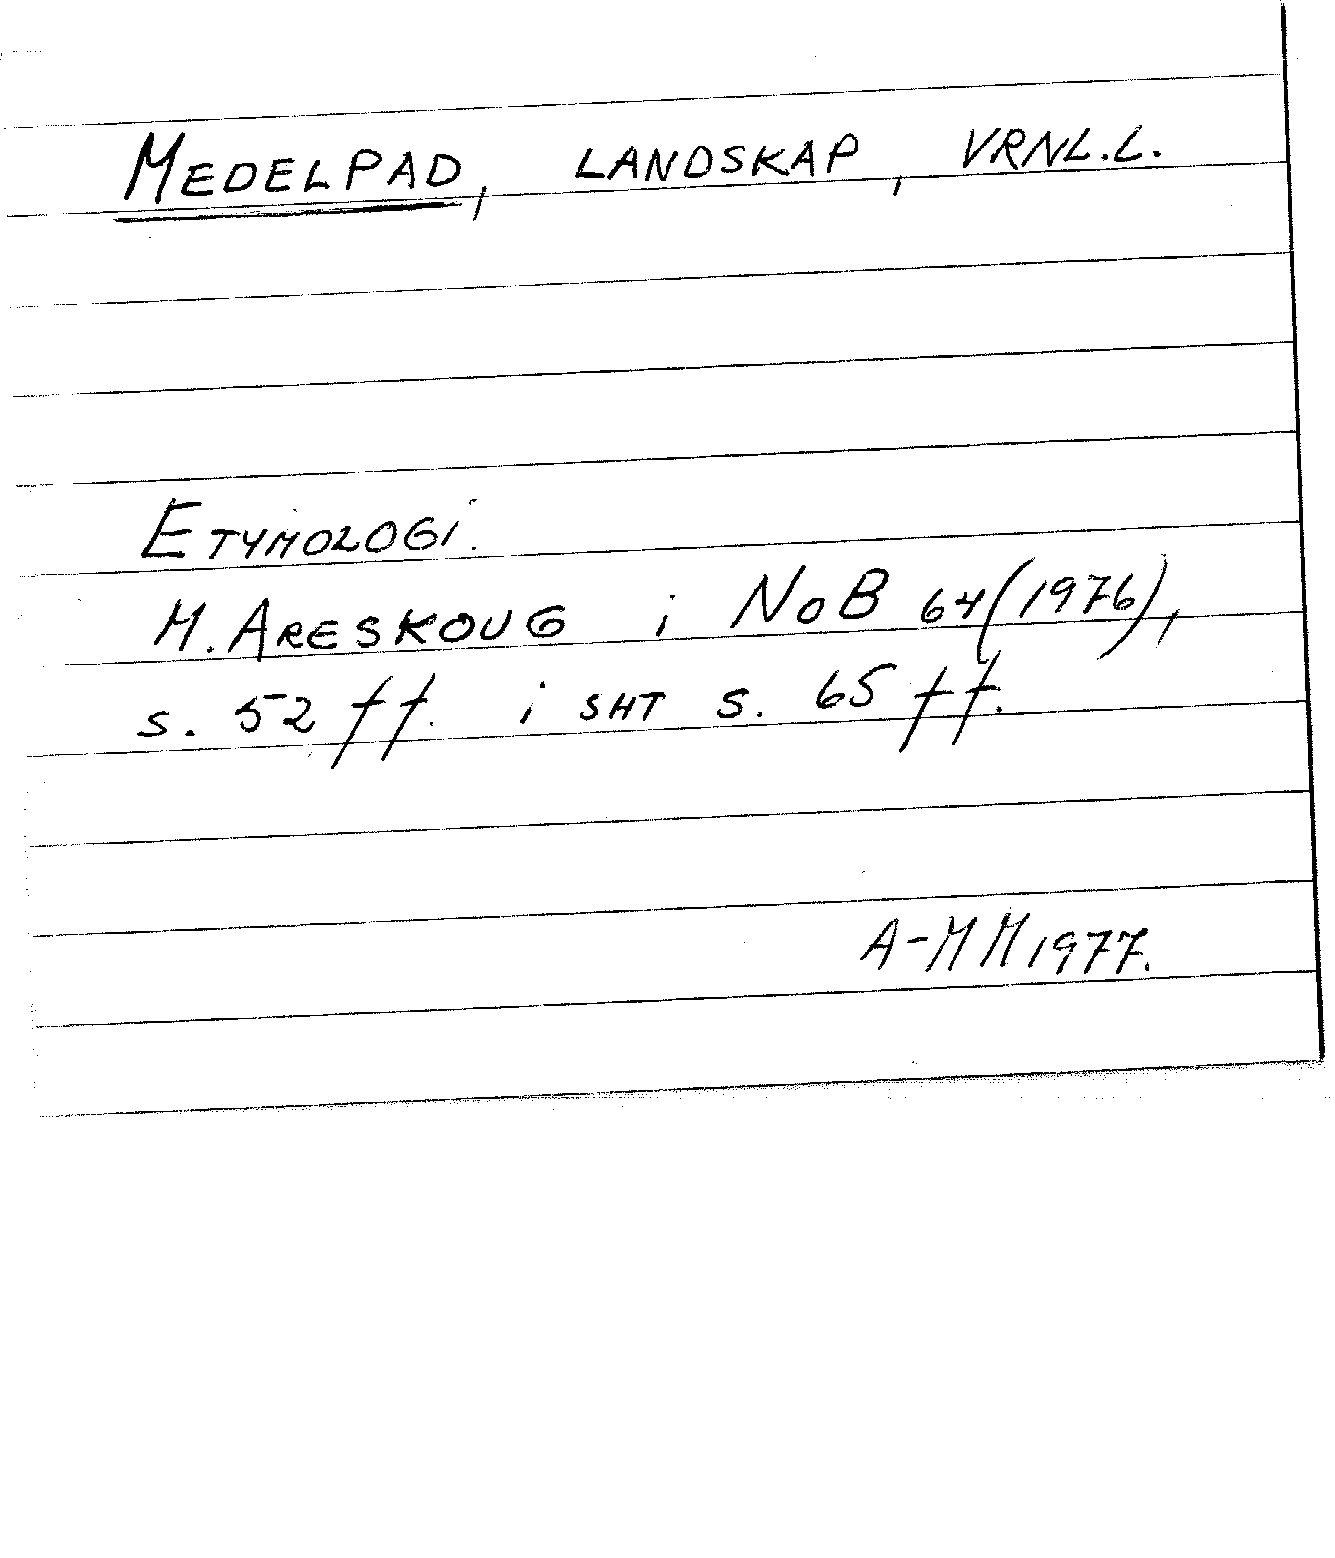 MEDELPAD, LANDSKAP, VRNL.L.
ETYMOLOGI.
M. ARESKOUG i NoB 64 (1976),
s. 52 ff. i SHT s. 65 ff.
A-MM 1977.